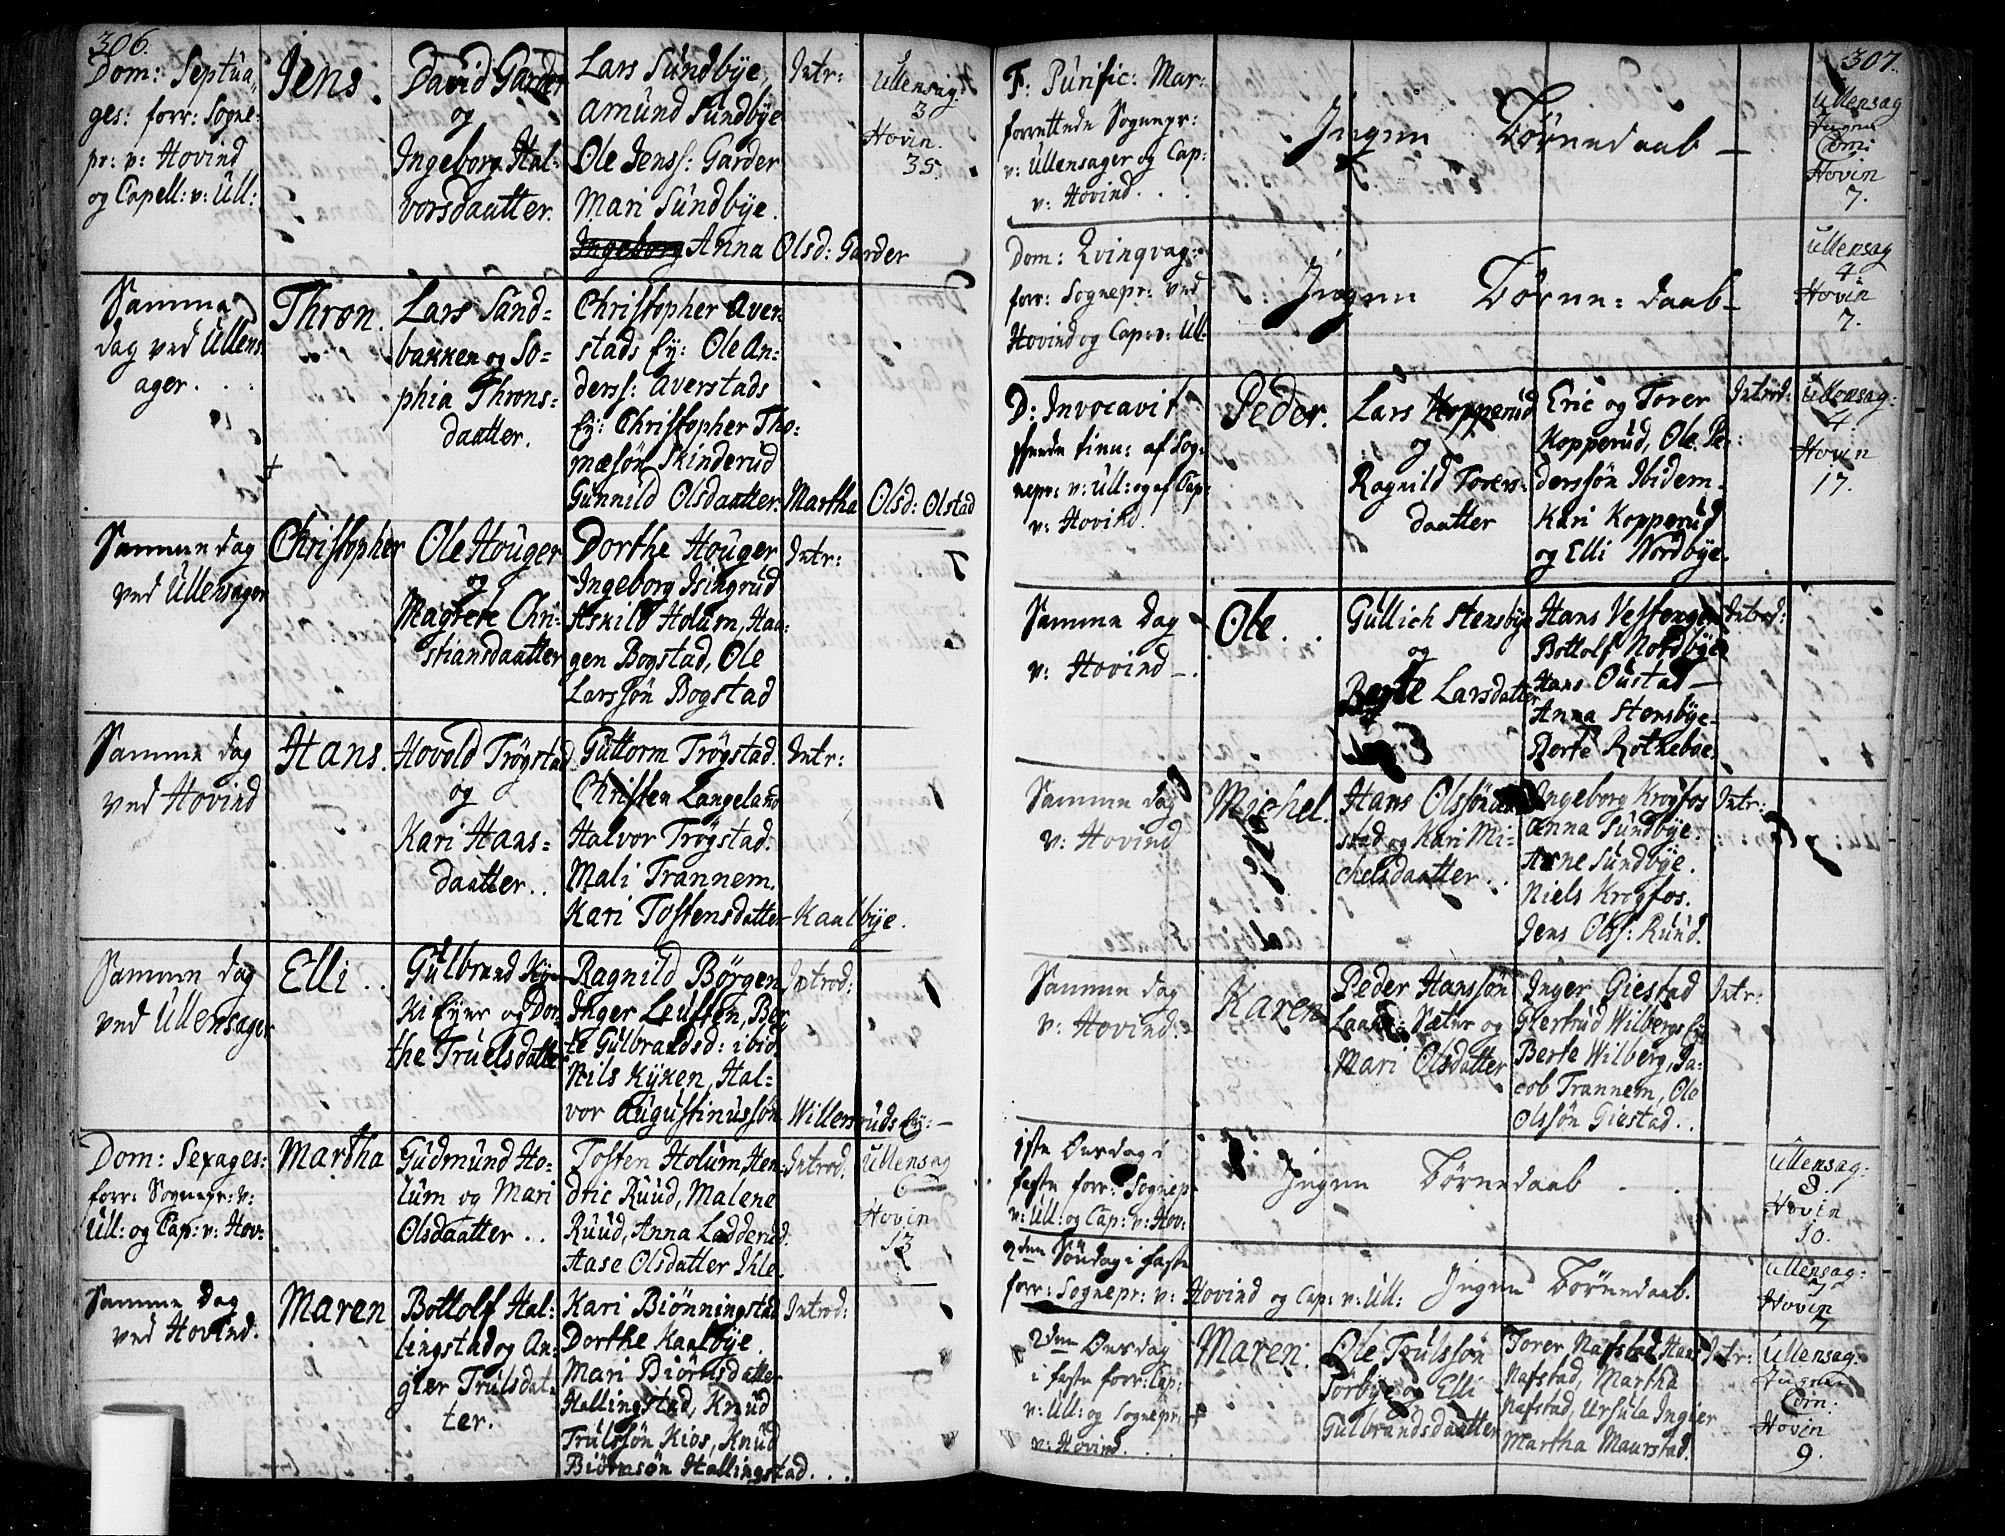 306.
Dom: Septua„
ges: forr: Sogne-
pr: v: Hovind
og Capell: v: Ull:
Jens.
David Garder
og
Ingeborg Hal-
vorsdaatter.
Lars Sundbye,
Amund Sundbye
Ole Jenss: Garder
Mari Sundbye.
Anna Olsd: Garder
Intr:
Ullensag:
3
Hovin.
35.
Samme
dag ved Ullens
ager.
Thron.
Lars Sand=
bakken og So=
phia Throns=
daatter.
Christopher Aver
stads Ey: Ole An-
derss: Averstads
Ey: Christopher Tho:
mæsøn Skinderud
Gunnild Olsdaatter. Martha Olsd: Olstad
Samme dag
ved Ullensager
Christopher
Ole Houger
og
Magrete Chri-
stiansdaatter
Dorthe Houger
Ingeborg Isingrud
Askild Holum, Haa-
gen Bogstad, Ole
Larssøn Bogstad
Intr:
Samme dag
ved Hovind
Hans.
Hovold Trøgstad
og
Kari Hans=
daatter..
Guttorm Trøgstad.
Christen Langeland
Halvor Trøgstad.
Mali Trannem.
Kari Tostensdatter Kaalbye.
Intr:
Samme dag
ved Ullensager
Elli..
Gulbrand Ky-
ki Eyer og Dor
the Truelsdatter
Ragnild Børgen
Inger Leusten, Ber
te Gulbrandsd: ibid.
Nils Kyken, Hal=
vor Augustinussøn Willersruds Ey:
Introd:
Dom: Sexages:
forr: Sognepr: v:
Ull: og Cap: v: Hov:
Martha
Gudmund Ho-
lum og Mari
Olsdaatter..
Tosten Holum, Hen-
dric Ruud, Malene
Ruud, Anna Ladderud.
Aase Olsdatter Ihle.
Introd.
Ullensag
6
Hovin
13
Samme dag
ved Hovind.
Maren
Bottolf Hal-
lingstad og An-
gier Trulsdat-
ter.
Kari Biønningstad
Dorthe Kaalbye.
Mari Biørnsdatter
Hallingstad, Knud
Trulssøn Kios, Knud
Biørnsøn Hallingstad...
Introd:
307.
F: Purific: Mar:
forrettede Sognepr:
v: Ullensager og Cap:
v: Hovind.
Ingen Børnedaab
Ullensag
Ingen
Com:
Hovin
7.
Dom: Qvinqvag:
forr: Sognepr: ved
Hovind og Cap: v: Ull-
Ingen Børne=daab
Ullensag
4.
Hovin
7.
D: Invocavit
af Sog-
nepr: v: Ull: og af Cap:
v: Hovind.
Peder.
Lars Kopperud
og
Ragnild Torers-
daatter
Eric og Torer
Kopperud, Ole Pe-
derssøn Ibidem.
Kari Kopperud
og Elli Nordbye.
Introd:
Ullensag:
4.
Hovin
17.
Samme dag
v: Hovind
Ole.
Gullich Stensbye
og
Berte Larsdatter
Hans Vestengen
Bottolf Nordbye
Hans Oustad
Anna Stensbye
Berte Rotneboe.
Introd:
Samme dag
v: Hovind
Michel.
Hans Olssøn
stad og Kari Mi-
chelsdaatter..
Ingeborg Krogfos
Anna Sundbye.
Arne Sundbye.
Niels Krogfos.
Jens Olss: Ruud.
Intr:
Samme dag
v: Hovind.
Karen
Peder Hanssøn
Sæter og
Mari Olsdatter
Inger Giestad
Giertrud Wilbergs Ey
Berte Wilberg, Ja-
cob Trannem, Ole
Olssøn Giestad..
Intr:
1ste Onsdag i
faste forr: Sognep
v: Ull: og Cap: v: Hov:
Ingen Børnedaab
Ullensag:
8.
Hovin
10.
2den Søndag i faste
forr: Sognepr: v: Hovind og Cap: v: Ull: Ingen Børnedaab.
Ullensag:
7
Hovin
7
2den Onsdag
i faste forr: Cap:
v: Ull: og Sognepr:
v: Hovind.
Maren.
Ole Trulssøn
Torbye og Elli
Gulbrandsdaatter
Torer Nafstad, Hans
Nafstad, Martha
Nafstad, Ursula Ingier
Martha Maurstad.
Intr:
Ullensag:
Ingen
Com:
Hovin
9.